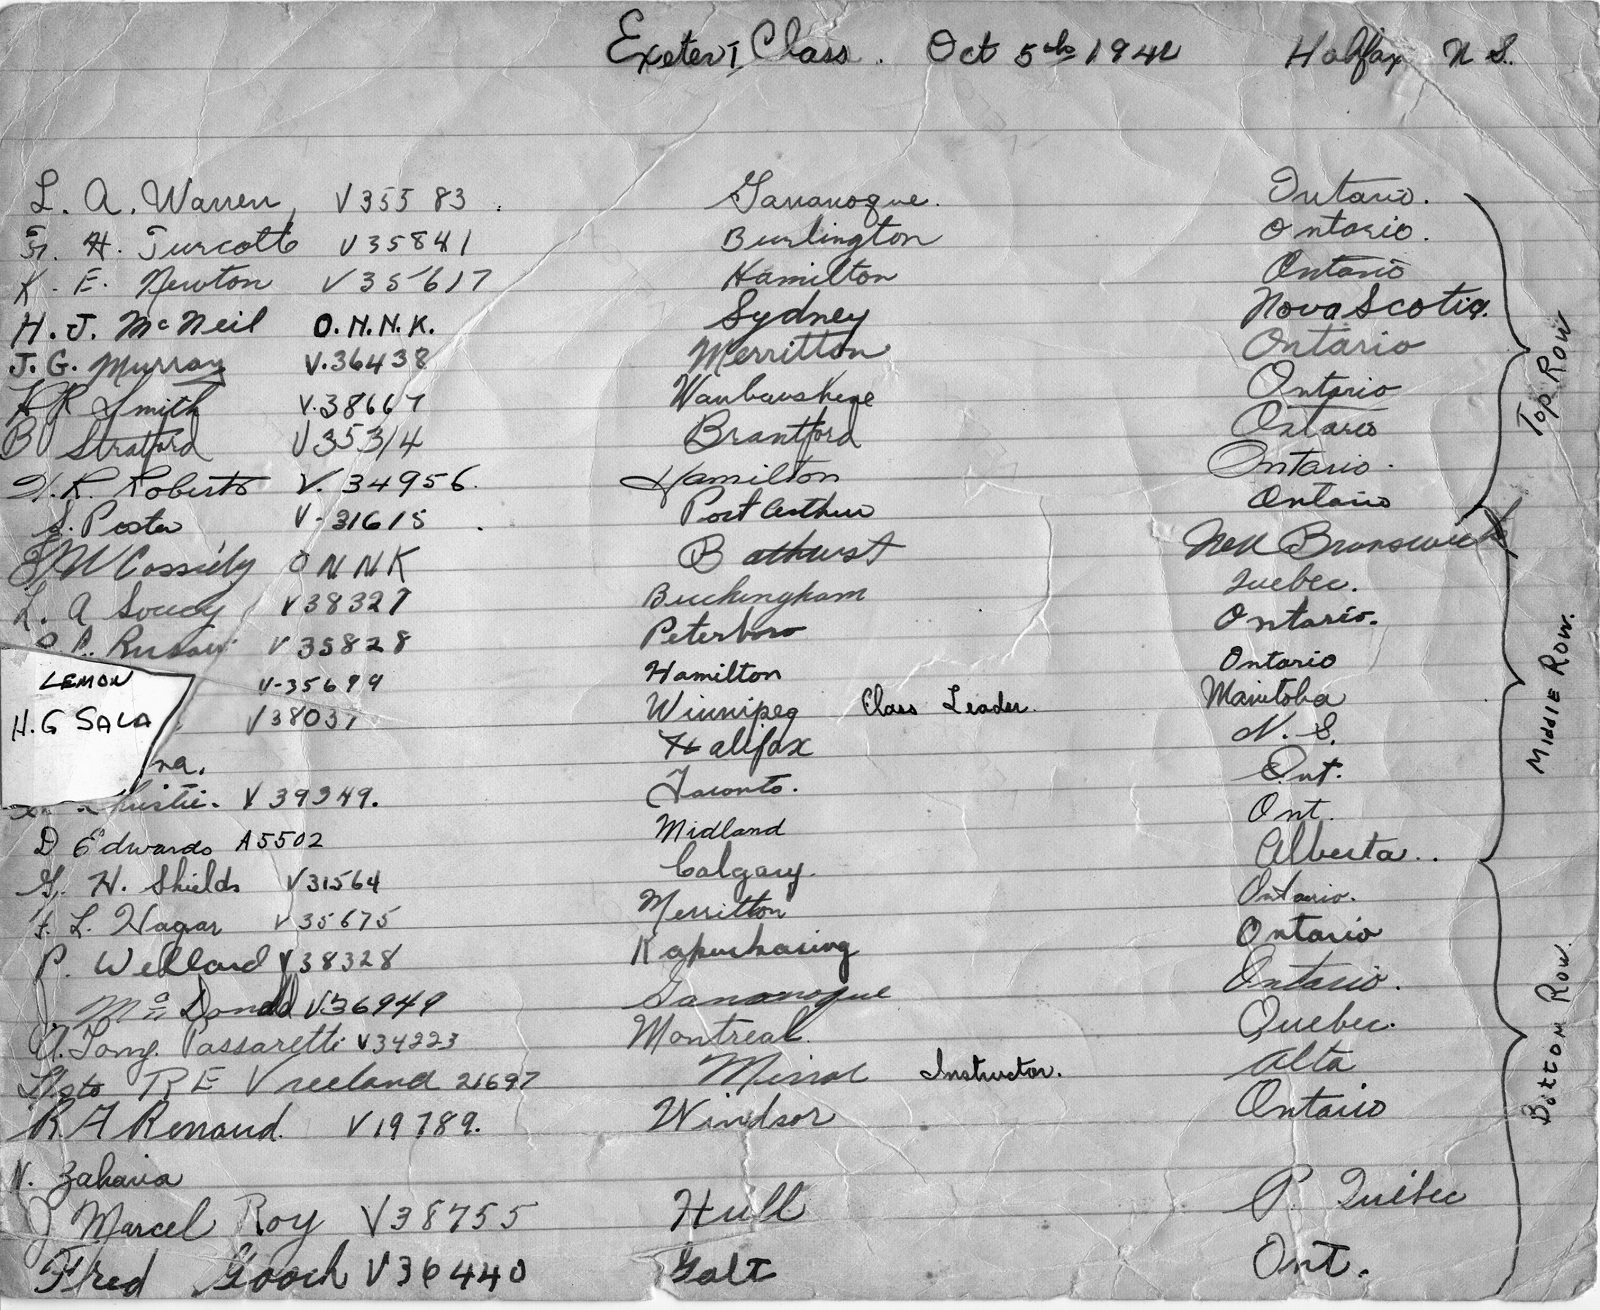 Exeter I Class. Oct 5th 1942 Halifax N S.
L. A. Warren, V35583. Gananoque. Ontario.
H. Turcotte V35841 Burlington Ontario.
K. E. Newton V35617 Hamilton Ontario
H. J. McNeil O.N.N.K. Sydney Nova Scotia.
J. G. Murray V.36438 Merritton Ontario
Top Row
R Smith V.38667 Waubaushene Ontario
B Stratford V35314 Brantford Ontario
R. Roberts V. 34956. Hamilton Ontario.
S. Poster V-31615. Port Arthur Ontario
W Cassidy ONNK Bathurst New Brunswick
L. A Soucy V38327 Buckingham Quebec.
V35828 Peterboro Ontario.
Middle Row.
LEMON V-35699 Hamilton Ontario
H. G SALA V38037 Winnipeg Class Leader. Manitoba
na. Halifax N. S.
V39349. Toronto. Ont.
D Edwards A5502 Midland Ont.
G. H. Shields V31564 Calgary. Alberta..
F. L. Hagar V35675 Merritton Ontario.
P. Wellard V38328 Kapuskasing Ontario
J McDonald V.36949 Gananoque Ontario.
Bottom Row.
A. Tony. Passaretti V34223 Montreal. Quebec.
R E Vreeland 21697 Mirror Instructor. Alta
R A Renaud. V19789. Windsor Ontario
N. Zaharia
J Marcel Roy V38755 Hull P. Québec
Fred Gooch V36440 Galt Ont.